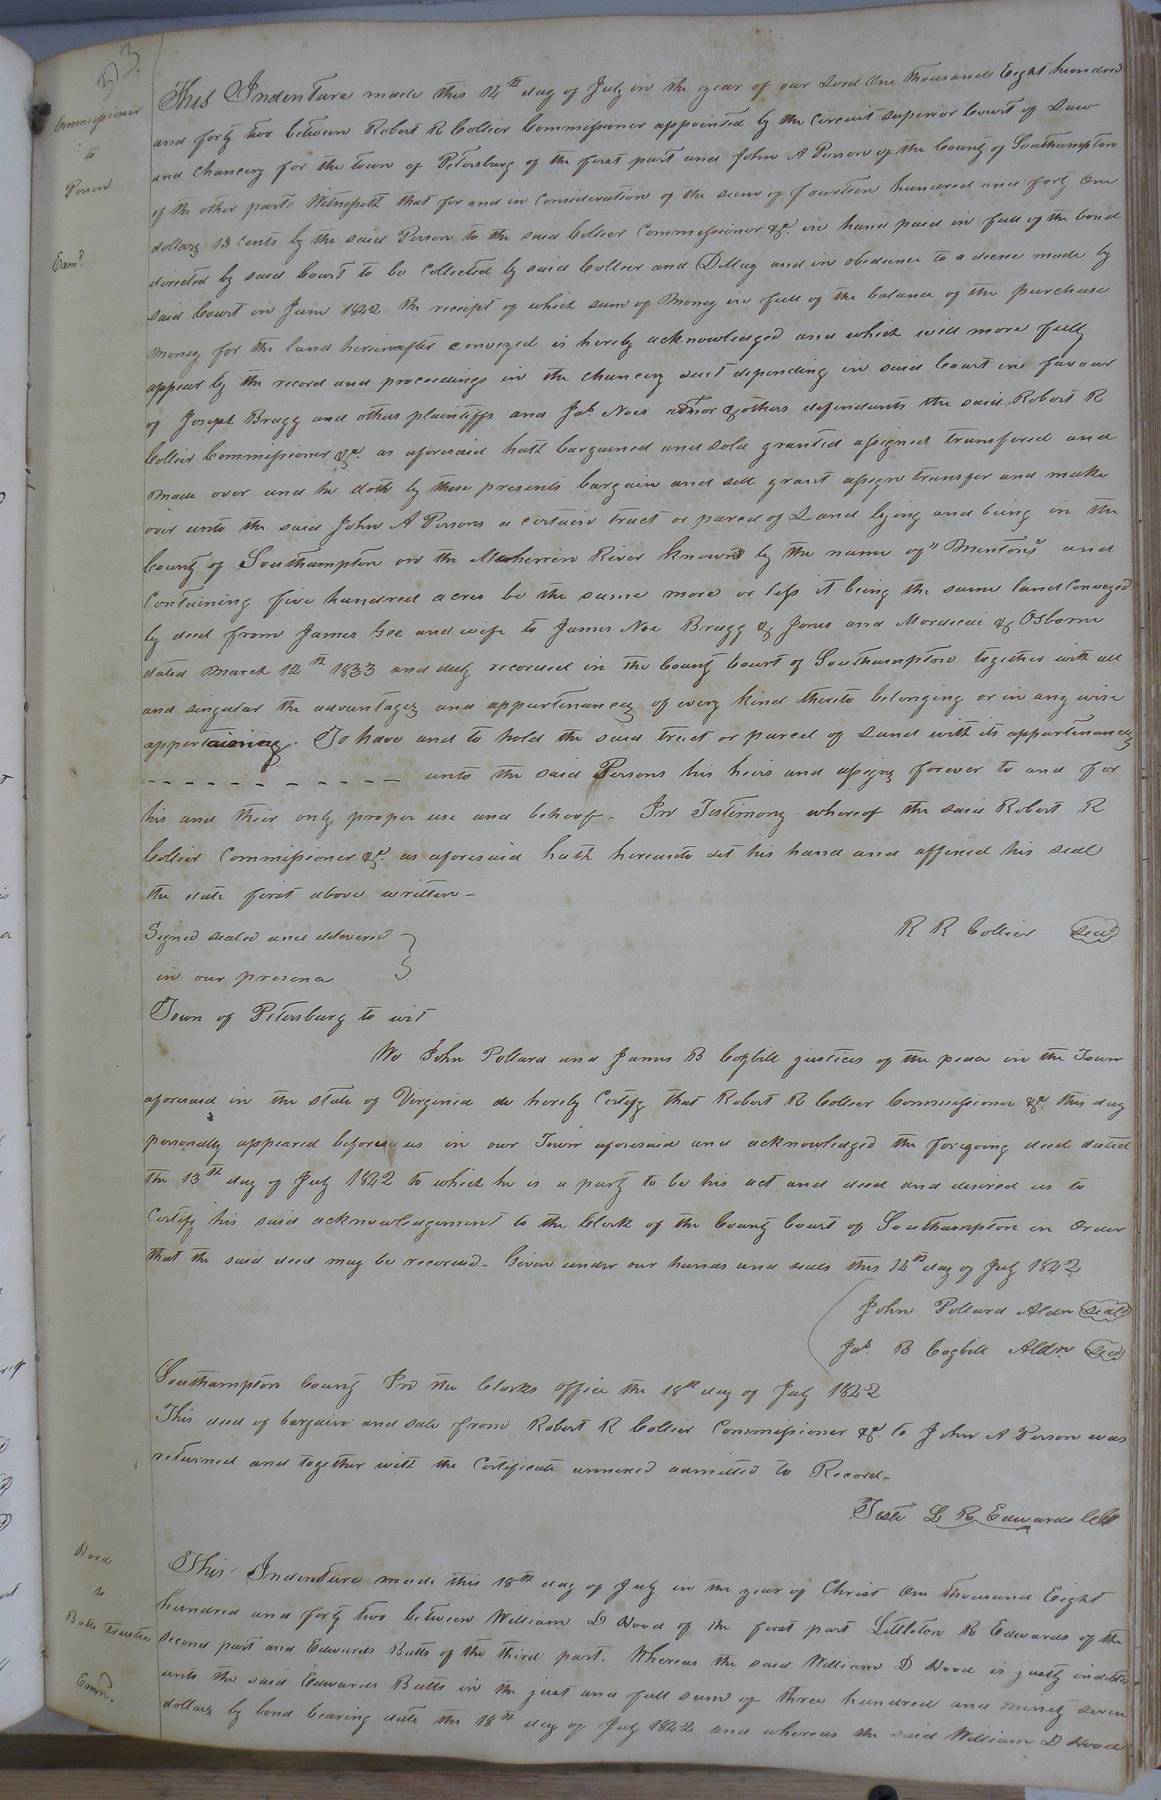 373
Commissioner
to
Person
Exmd.
This Indenture made this 14th day of July in the year of our Lord One thousand Eight hundred
and forty two between Robert R Collier Commissioner appointed by the Circuit Superior Court of Law
and Chancery for the town of Petersburg of the first part and John A Person of the County of Southampton
of the other part. Witnesseth that for and in Consideration of the sum of fourteen hundred and forty One
dollars 13 cents by the said Person to the said Collier Commissioner &c. in hand paid in full of the bond
directed by said Court to be Collected by said Collier and and in obedience to a decree made by
said Court in June 1842 the receipt of which sum of Money in full of the balance of the purchase
money for the land hereinafter conveyed is hereby acknowledged and which will more fully
appear by the record and proceedings in the chancery suit depending in said Court in favour
of Joseph Bragg and others plaintiffs and Jas. Noes admor & others defendants the said Robert R
Collier Commissioner &c. as aforesaid hath bargained and sold granted assigned transfered and
made over and he doth by these presents bargain and sell grant assign transfer and make
over unto the said John A Persons a certain tract or parcel of Land lying and being in the
County of Southampton on the Meherrin River known by the name of "Mentons" and
Containing five hundred acres be the same more or less it being the same land Conveyed
by deed from James Gee and wife to James Noe Bragg & Jones and Mordecai & Osborne
dated March 12th 1833 and duly recorded in the County Court of Southampton together with all
and singular the advantages and appurtenances of every kind thereto belonging or in any wise
appertaining. To have and to hold the said tract or parcel of Land with its appurtenances
- - - - - - - - - - - unto the said Persons his heirs and assigns forever to and for
his and their only proper use and behoof. In Testimony whereof the said Robert R
Collier Commissioner &c. as aforesaid hath hereunto set his hand and affixed his seal
the date first above written -
Signed sealed and delivered
R R Collier Seal
in our presence
Town of Petersburg to wit
We John Pollard and James B Cogbill justices of the peace in the Town
aforesaid in the state of Virginia do hereby Certify that Robert R Collier Commissioner &c. this day
personally appeared before us in our Town aforesaid and acknowledged the foregoing deed dated
the 13th day of July 1842 to which he is a party to be his act and deed and desired us to
Certify his said acknowledgement to the Clerk of the County Court of Southampton in Order
that the said deed may be recorded. Given under our hands and seals this 14th day of July 1842
John Pollard Aldn Seal
Jas. B Cogbill Aldn. Seal
Southampton County In the Clerks office the 18th day of July 1842
This deed of bargain and sale from Robert R Collier Commissioner &c. to John A Person was
returned and together with the Certificate annexed admitted to Record.
Teste L R Edwards Clk
Hood
to
Butts Trustee
Examd.
This Indenture made this 18th day of July in the year of Christ One thousand Eight
hundred and forty two between William D Hood of the first part Littleton R Edwards of the
second part and Edwards Butts of the third part. Whereas the said William D Hood is justly indebted
unto the said Edwards Butts in the just and full sum of three hundred and ninety seven
dollars by bond bearing date the 18th day of July 1842 and whereas the said William D Hood